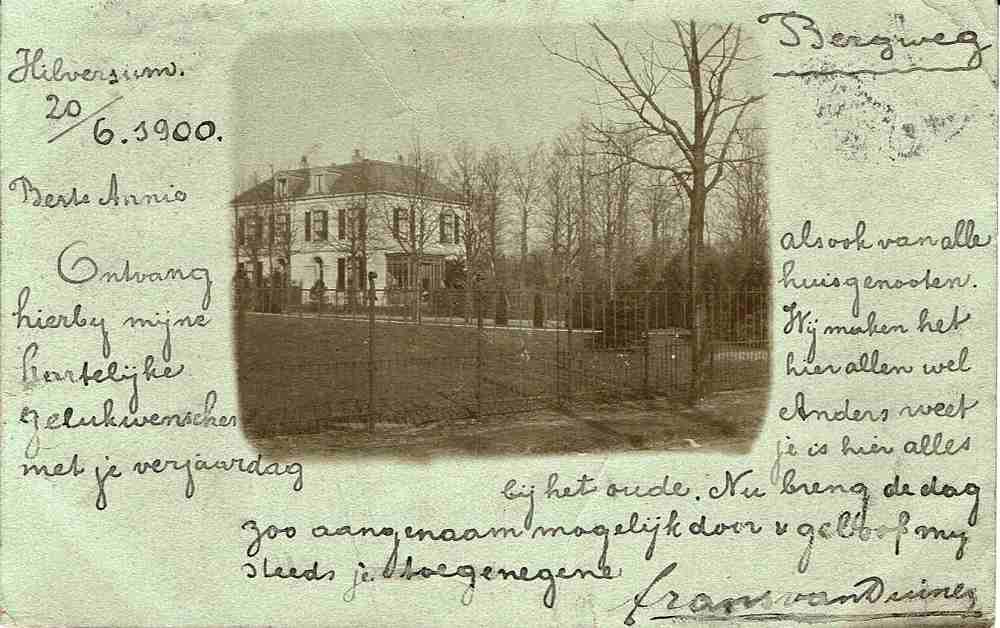 Bergweg
Hilversum.
20/6.1900.
Beste Annie
Ontvang
hierby mijne
hartelijke
gelukwenschen
met je verjaardag
alsook van alle
huisgenooten.
Wij maken het
hier allen wel
Anders weet
je is hier alles
bij het oude. Nu breng de dag
zoo aangenaam mogelijk door &
steeds je toegenegene
Frans van